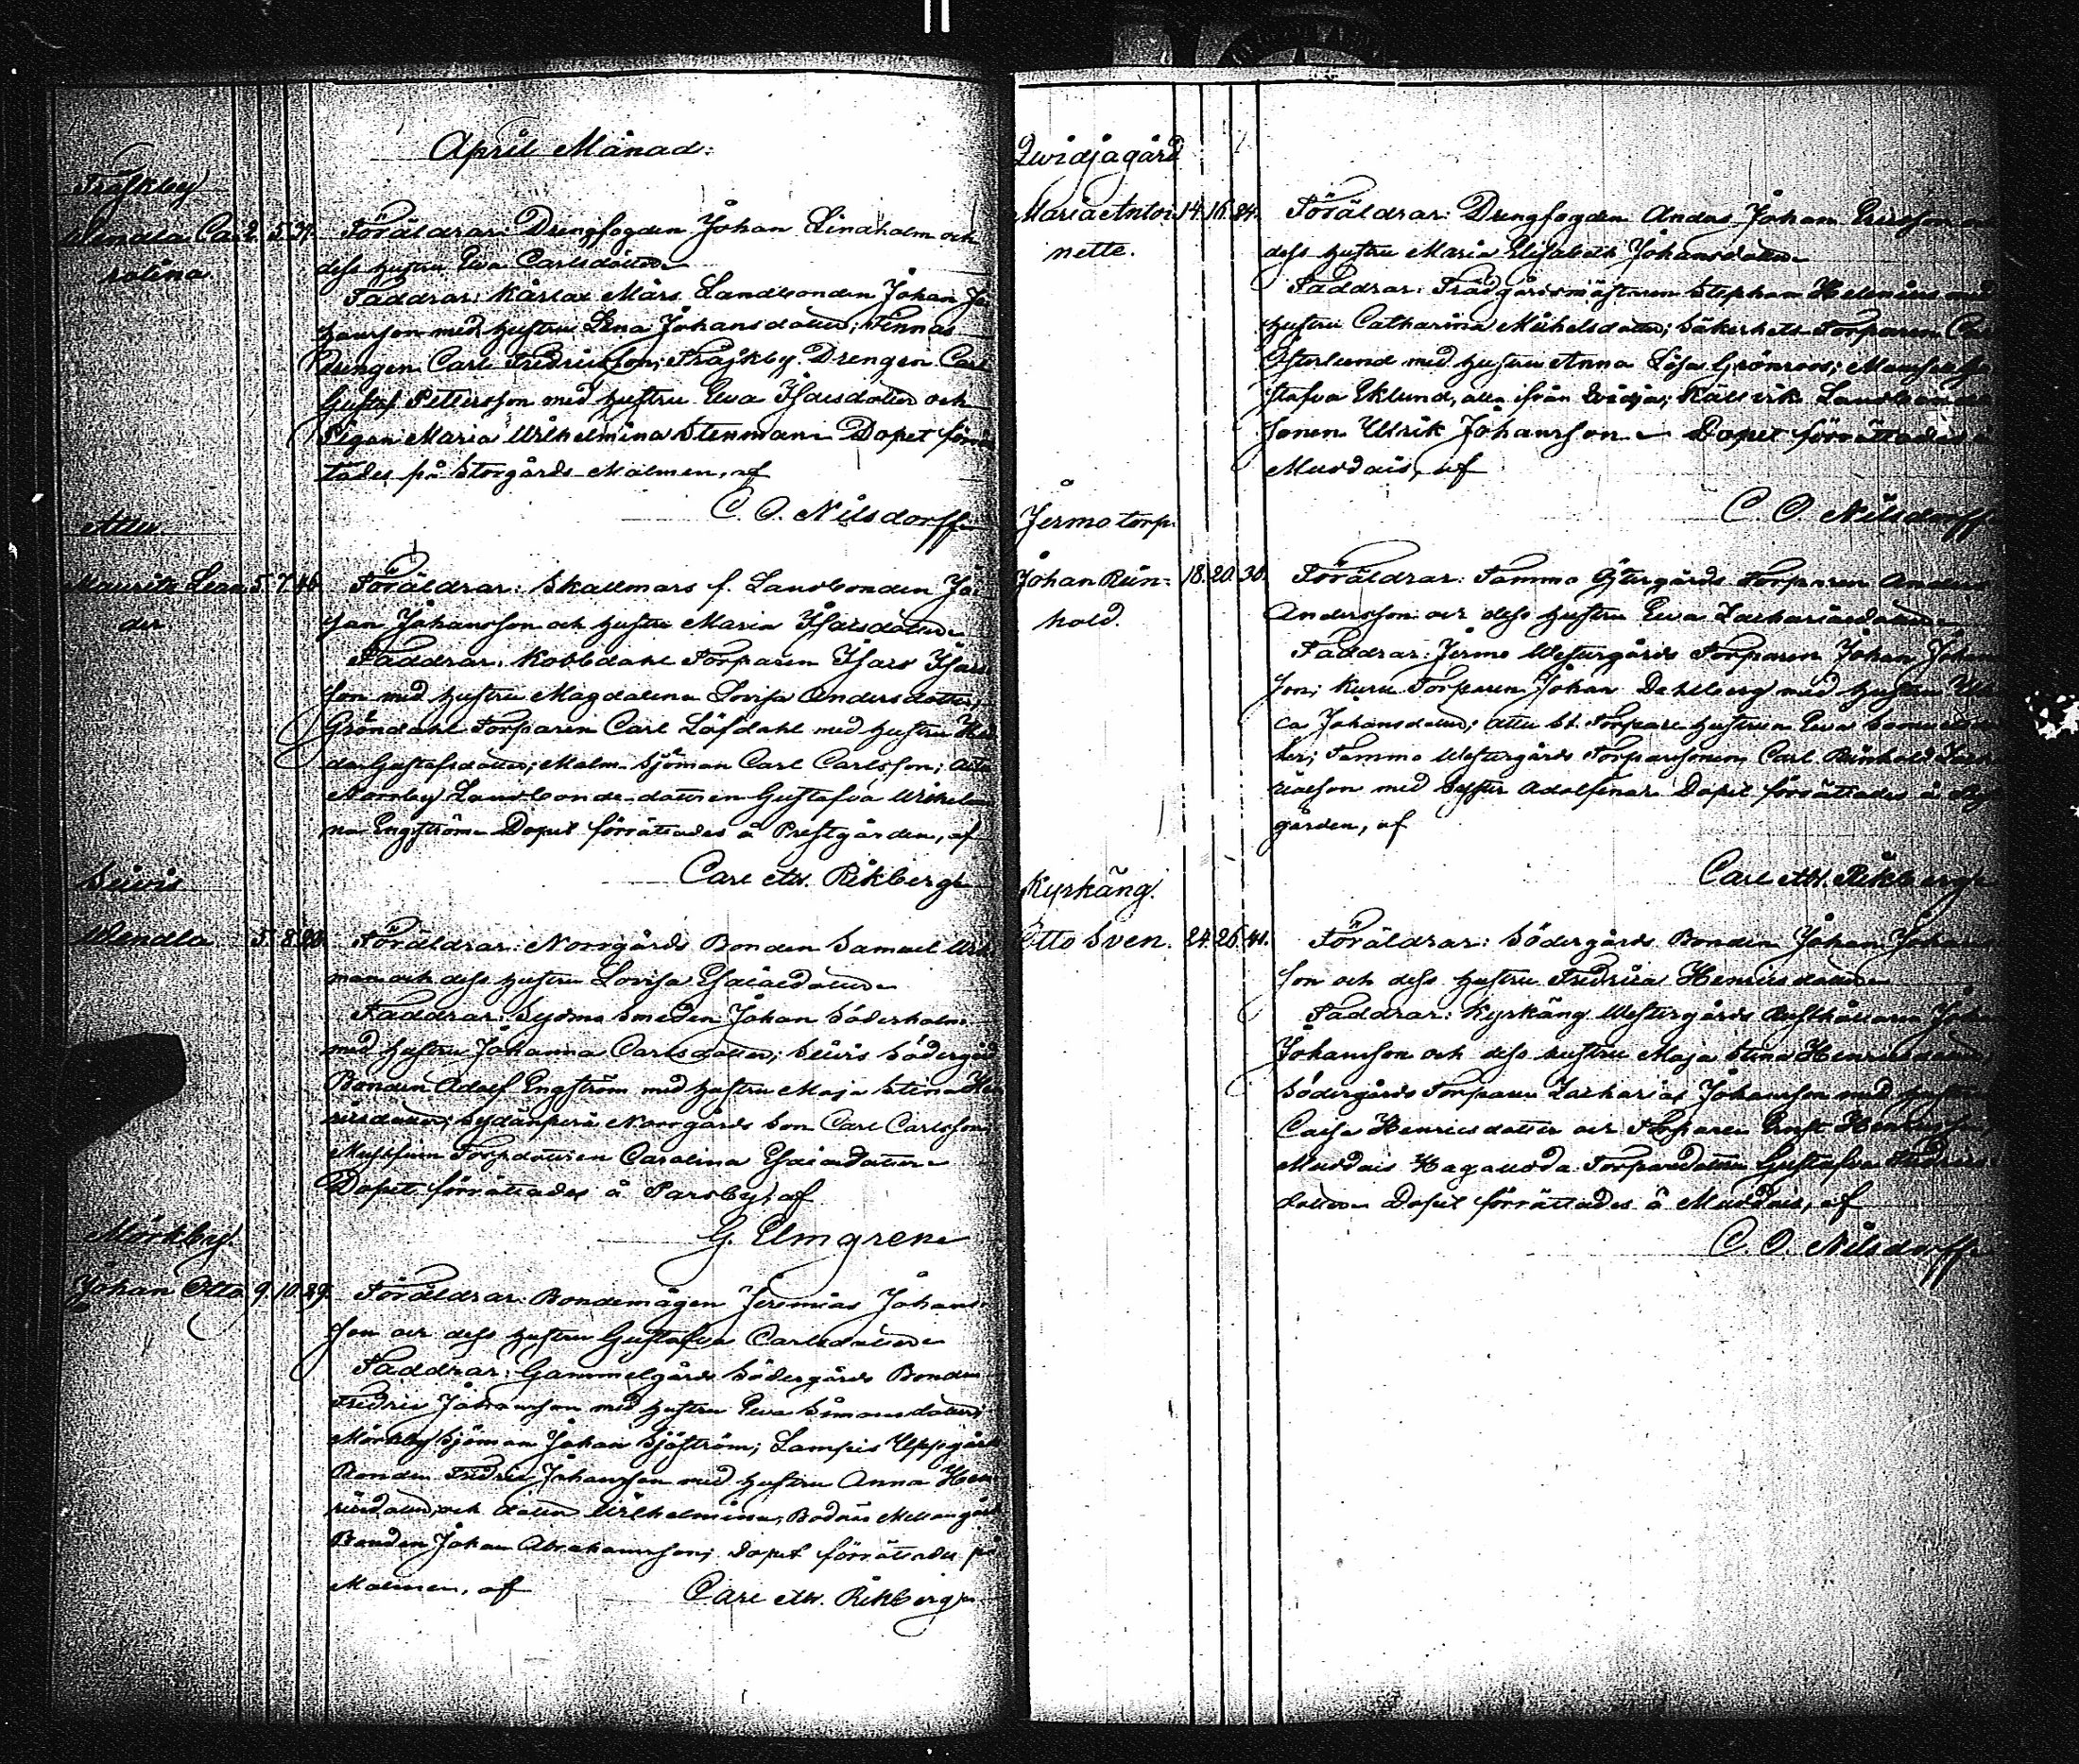 April Månad:
Träskby
Wendla Ca- 2. 5. 31. Föräldrar: Drengfogden Johan Lindholm och
rolina. dess hustru Eva Carlsdotter
Faddrar: Kårlax Mårs Landbonden Johan Jo
hansson med hustru Lena Johansdotter; Finnas
Drengen Carl Fredricsson; Träskby Drengen Carl
Gustaf Pettersson med hustru Eva Isacsdotter och
Pigan Maria Wilhelmina Stenman Dopet förrät
tades på Storgårds Malmen, af
C. O. Nilsdorff
Attu.
Maurits Lean 5. 7. 46. Föräldrar: Skallmars f. Landbonden Jo
der. han Johansson och hustru Maria Isacsdotter
Faddrar: Kobbdahl Torparen Isac Isacs
son med hustru Magdalena Lovisa Andersdotter;
Gröndahl Torparen Carl Löfdahl med hustru
Gustafsdotter; Malm Sjöman Carl Carlsson; Attu
Norrby Landbonde-dottren Gustafva Wilhelmi
na Engström Dopet förrättades å Prestgården, af
Carl Ad. Rikberg
Wendla 5. 8. 28. Föräldrar: Norrgårds Bonden Samuel
man och dess hustru Lovisa Esaiædotter
Faddrar: Sydmo Smeden Johan Söderholm
med hustru Johanna Carlsdotter; Södergård
Bonden Adolf Engström med hustru Maja Stina Hen
ricsdotter; Sydänperä Norrgårds Son Carl Carlsson;
Torpdottren Carolina Esaiædotter
Dopet förrättades å Parsby, af
G. Elmgren
Mörkby
Johan Otto 9. 10. 29. Föräldrar: Bondemågen Jeremias Johans
son och dess hustru Gustafva Carlsdotter
Faddrar: Gammelgårds Södergårds Bonden
Fredric Johansson med hustru Eva Simonsdotter;
Mörkby Sjöman Johan Sjöström; Lampis Uppgård
Bonden Fredric Johansson med hustru Anna Hen
ricsdotter, och dotter Wilhelmina; Bodnäs Mellangård
Bonden Johan Abrahamsson; Dopet förrättades på
Malmen, af Carl Ad. Rikberg
Qvidjagård
Maria Antoi- 14. 16. 24. Föräldrar: Drengfogden Anders Johan Ericsson
nette. dess hustru Maria Elisabeth Johansdotter
Faddrar: Trädgårdsmästaren Stephan Helenius med
hustru Catharina Michelsdotter; Säkerhets Torparen
Österlund med hustru Anna Lisa Grönroos; Mamsell Gu
stafva Eklund, alla ifrån Qvidja; Källvik Landbonde
sonen Ulrik Johansson Dopet förrättades å
Muddais, af
C. O. Nilsdorff
Jermo torp.
Johan Rein- 18. 20. 30. Föräldrar: Tammo Östergårds Torparen Anders
hold. Andersson och dess hustru Eva Zachariædotter
Faddrar: Jermo Westergårds Torparen Johan Johans
son; Kuru Torparen Johan Dahlberg med hustru Ulri
ca Johansdotter; Attu St. Torpare hustrun Eva
Tammo Westergårds Torparsonen Carl Reinhold Zach
riæson med Syster Adolfina Dopet förrättades å
gården, af
Carl Ad. Rikberg
Kyrkäng.
Otto Sven. 24. 26. 41. Föräldrar: Södergårds Bonden Johan Johans
son och dess hustru Fredrica Henricsdotter
Faddrar: Kyrkäng Westergårds Rusthållaren Johan
Johansson och dess hustru Maja Stina Henricsdotter
Södergårds Torparen Zacharias Johansson med hustru
Caisa Henricsdotter och Torparen Ernst Henricsson
Muddais Hagaudda Torparedottren Gustafva
dotter Dopet förrättades å Muddais, af
C. O. Nilsdorff